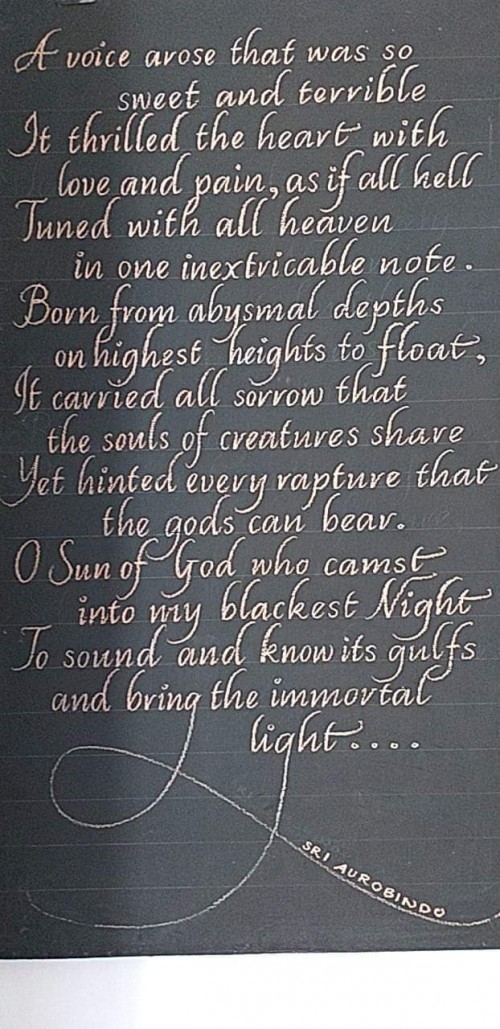 A voice arose that was so
sweet and terrible
It thrilled the heart with
love and pain, as if all hell
Tuned with all heaven
in one inextricable note.
Born from abysmal depths
on highest heights to float,
It carried all sorrow that
the souls of creatures share
Yet hinted every rapture that
the gods can bear.
O Sun of God who camst
into my blackest Night
To sound and know its gulfs
and bring the immortal
light....
SRI AUROBINDO